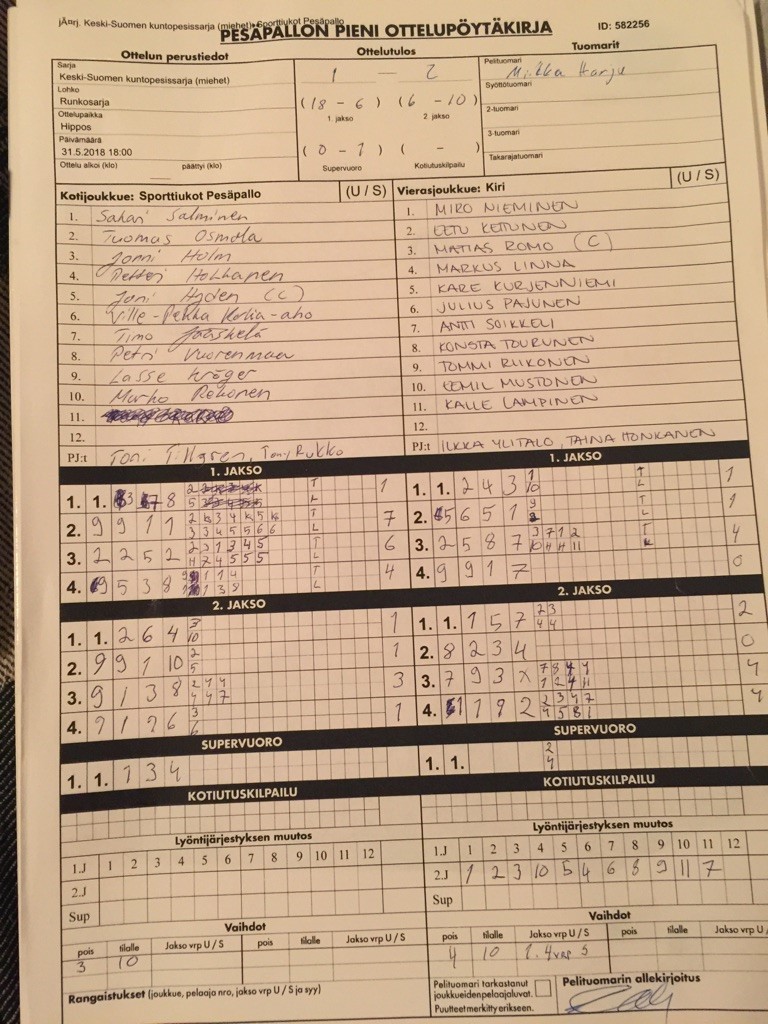 jÄnrj. Keski-Suomen kuntopesissarja (miehet) Sporttiukot Pesäpallo
PESÄPALLON PIENI OTTELUPÖYTÄKIRJA
ID: 582256
Ottelun perustiedot
Ottelutulos
Tuomarit
Sarja
Keski-Suomen kuntopesissarja (miehet)
Lohko
Runkosarja
Ottelupaikka
Hippos
Päivämäärä
31.5.2018 18:00
Ottelu alkoi (klo) päättyi (klo)
1 — 2
(18 - 6) (6 - 10)
1. jakso 2. jakso
(0 - 1) ( - )
Supervuoro Kotiutuskilpailu
Pelituomari
Miikka Harju
Syöttötuomari
2-tuomari
3-tuomari
Takarajatuomari
Kotijoukkue: Sporttiukot Pesäpallo (U / S)
1. Sakari Salminen
2. Tuomas Osmola
3. Jonni Holm
4. Petteri Hokkanen
5. Joni Hyden (C)
6. Ville-Pekka
7. Timo Jääskelä
8. Petri Vuorenmaa
9. Lasse Kröger
10. Marko Rekonen
11.
12.
PJ:t Toni Tillgren, Tony Rukko
Vierasjoukkue: Kiri (U / S)
1. MIRO NIEMINEN
2. EETU KETTUNEN
3. MATIAS ROMO (C)
4. MARKUS LINNA
5. KARE KURJENNIEMI
6. JULIUS PAJUNEN
7. ANTTI SOIKKELI
8. KONSTA TOURUNEN
9. TOMMI RIIKONEN
10. EEMIL MUSTONEN
11. KALLE LAMPINEN
12.
PJ:t ILKKA YLITALO, TAINA HONKANEN
1. JAKSO
1. 1. 8 T L 1
2. 9 9 1 1 T L 7
3. 2 2 5 2 T L 6
4. 9 5 3 8 T L 4
2. JAKSO
1. 1. 2 6 4 3 10 1
2. 9 9 1 10 2 5 1
3. 9 1 3 8 3
4. 7 1 2 6 3 6 1
SUPERVUORO
1. 1. 1 3 4
KOTIUTUSKILPAILU
Lyöntijärjestyksen muutos
1.J 1 2 3 4 5 6 7 8 9 10 11 12
2.J
Sup
Vaihdot
pois tilalle Jakso vrp U / S pois tilalle Jakso vrp U / S
3 10
Rangaistukset (joukkue, pelaaja nro, jakso vrp U / S ja syy)
1. JAKSO
1. 1. 2 4 3 1 10 T L 1
2. 5 6 5 1 T L 1
3. 2 5 8 7 T 4
4. 9 9 1 7 0
2. JAKSO
1. 1. 1 5 7 2 3 4 4 2
2. 8 2 3 4 0
3. 7 9 3 x 4
4. 1 1 9 2 4
SUPERVUORO
1. 1. 2 4
KOTIUTUSKILPAILU
Lyöntijärjestyksen muutos
1.J 1 2 3 4 5 6 7 8 9 10 11 12
2.J 1 2 3 10 5 4 6 8 9 11 7
Sup
Vaihdot
pois tilalle Jakso vrp U / S pois tilalle Jakso vrp U / S
4 10 1. 4vrp S
Pelituomari tarkastanut
joukkueiden pelaajaluvat.
Puutteet merkitty erikseen.
Pelituomarin allekirjoitus